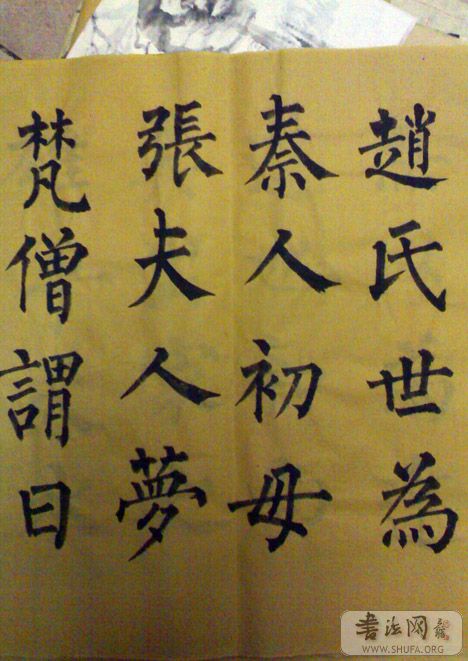 趙氏世為
秦人初母
張夫人夢
梵僧謂曰
书法网
WWW.SHUFA.ORG